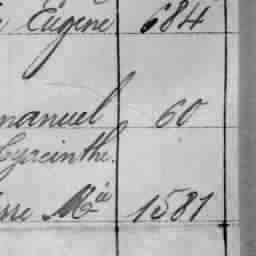 Eugène 684
manuel 60
Hyacinthe.
rre Mie 1581